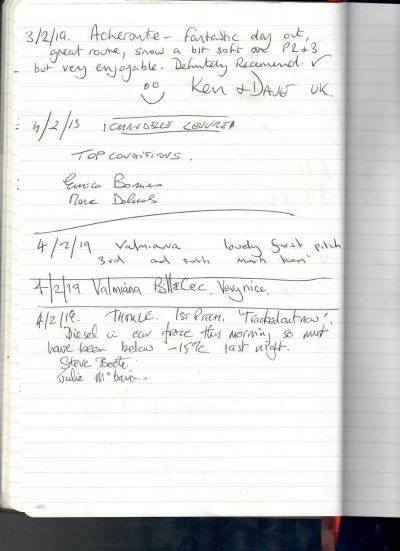 3/2/19. Acheronte - Fantastic day out,
great route, snow a bit soft on P2+3
but very enjoyable. Definitely Recommend. ✓
Ken + Dave UK.
4/2/19
TOP CONDITIONS.
4/2/19 Valmiana lovely first pitch
3rd and Mark Ken
4/2/19 Valmiana Bill & Cec. Very nice.
4/2/19. 1st Pitch. 'Tracked out now'.
Diesel in car froze this morning so must
have been below -15°C last night.
Steve Boote
Julie
48